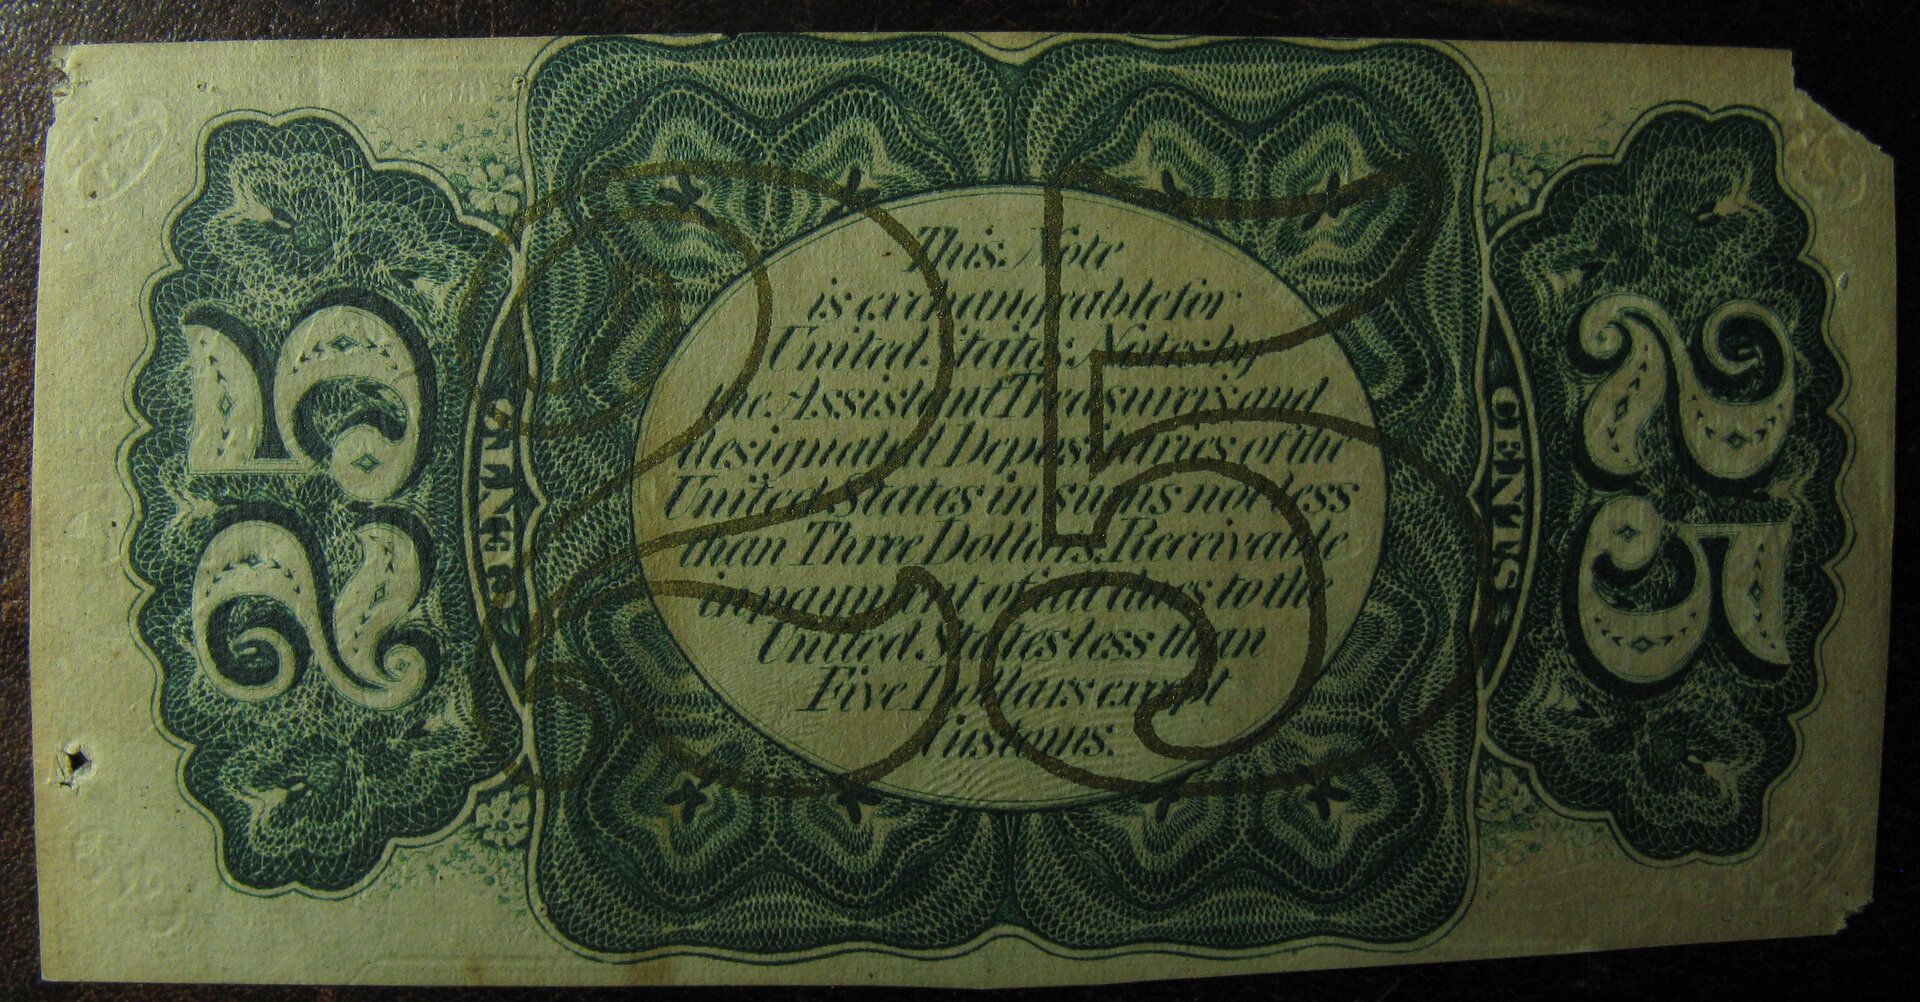 This Note
is exchangeable for
United States Notes by
the Assistant Treasurers and
designated Depositaries of the
United States in sums not less
than Three Dollars. Receivable
in payment of all dues to the
United States less than
Five Dollars except
Customs.
25
25
CENTS
25
CENTS